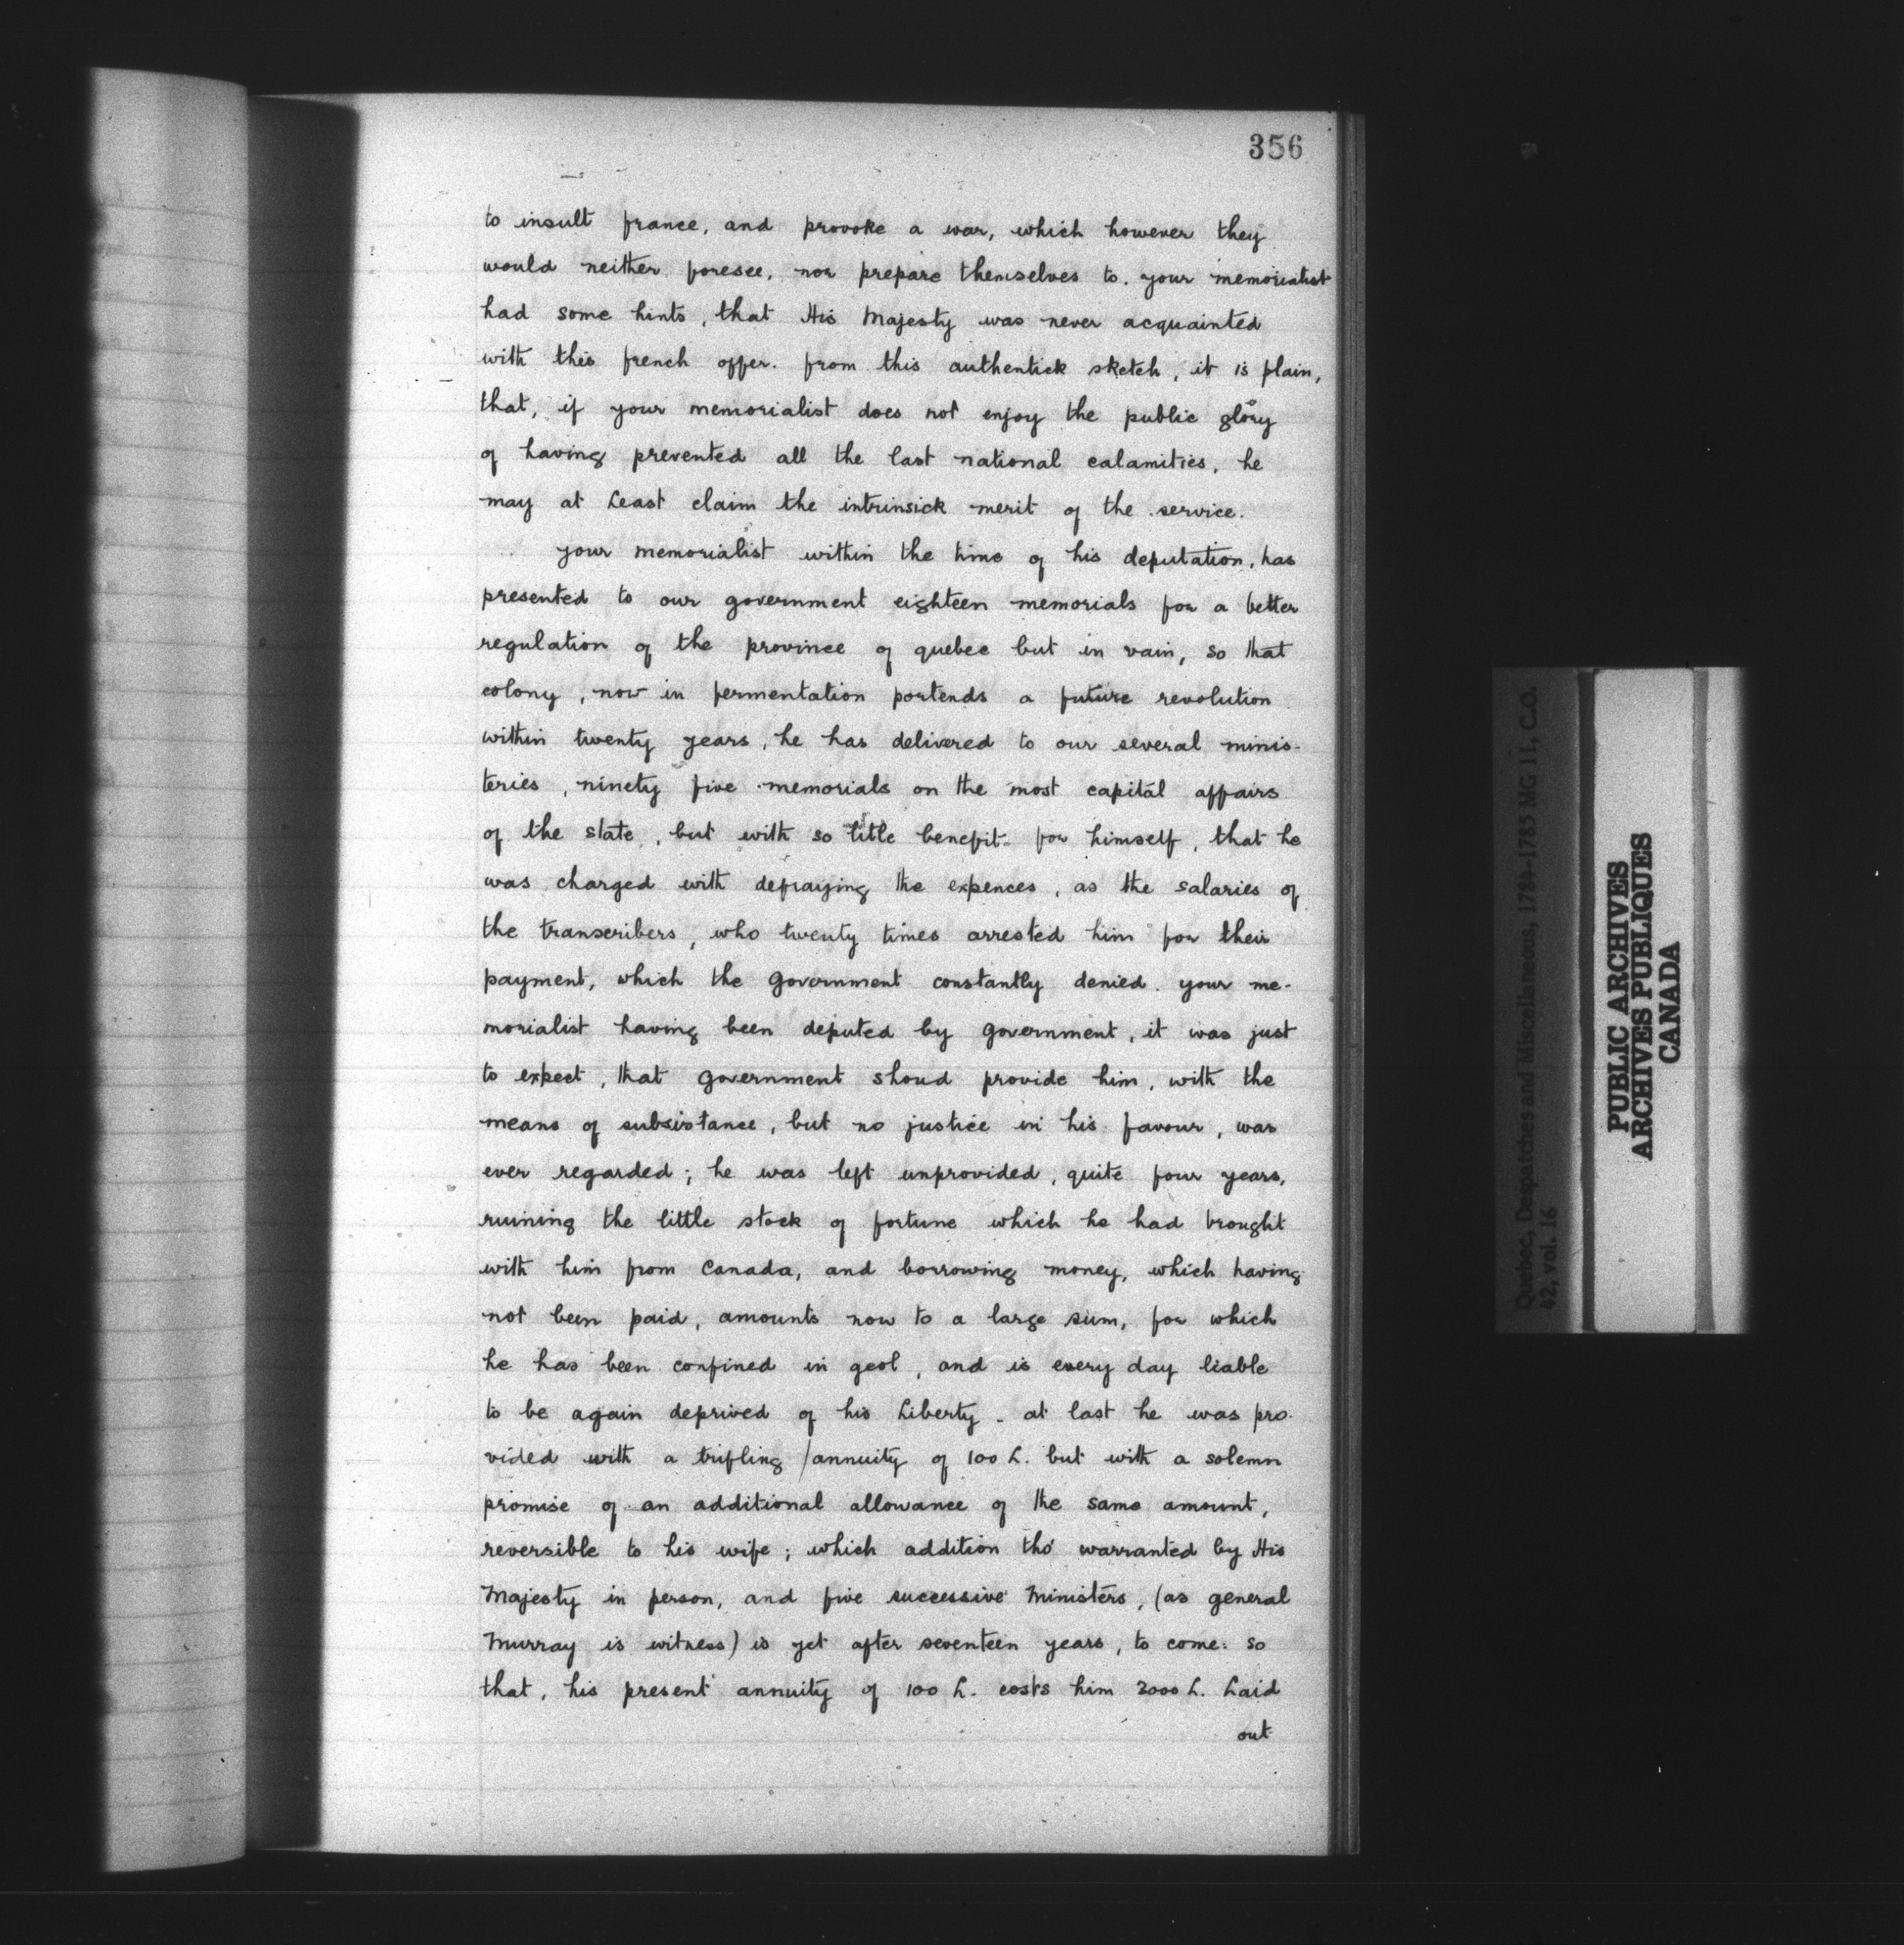 356
to insult france, and provoke a war, which however they
would neither foresee, nor prepare themselves to. your memorialist
had some hints, that His Majesty was never acquainted
with this french offer. from this authentick sketch, it is plain,
that, if your memorialist does not enjoy the public glory
of having prevented all the last national calamities, he
may at Least claim the intrinsick merit of the service.
your memorialist within the time of his deputation, has
presented to our government eighteen memorials for a better
regulation of the province of quebec but in vain, so that
colony, now in fermentation portends a future revolution
within twenty years, he has delivered to our several minis-
teries, ninety five memorials on the most capital affairs
of the state, but with so little benefit for himself, that he
was charged with defraying the expences, as the salaries of
the transcribers, who twenty times arrested him for their
payment, which the government constantly denied. your me-
morialist having been deputed by government, it was just
to expect, that government shoud provide him, with the
means of subsistance, but no justice in his favour, was
ever regarded; he was left unprovided, quite four years,
ruining the little stock of fortune which he had brought
with him from Canada, and borrowing money, which having
not been paid, amounts now to a large sum, for which
he has been confined in geol, and is every day liable
to be again deprived of his Liberty. at last he was pro-
vided with a trifling /annuity of 100 L. but with a solemn
promise of an additional allowance of the same amount,
reversible to his wife; which addition tho' warranted by His
Majesty in person, and five successive Ministers, (as general
Murray is witness) is yet after seventeen years, to come: so
that, his present annuity of 100 L. costs him 2000 L. Laid
out
Quebec, Despatches and Miscellaneous, 1784-1785 MG 11, C.O.
42, vol. 16
PUBLIC ARCHIVES
ARCHIVES PUBLIQUES
CANADA